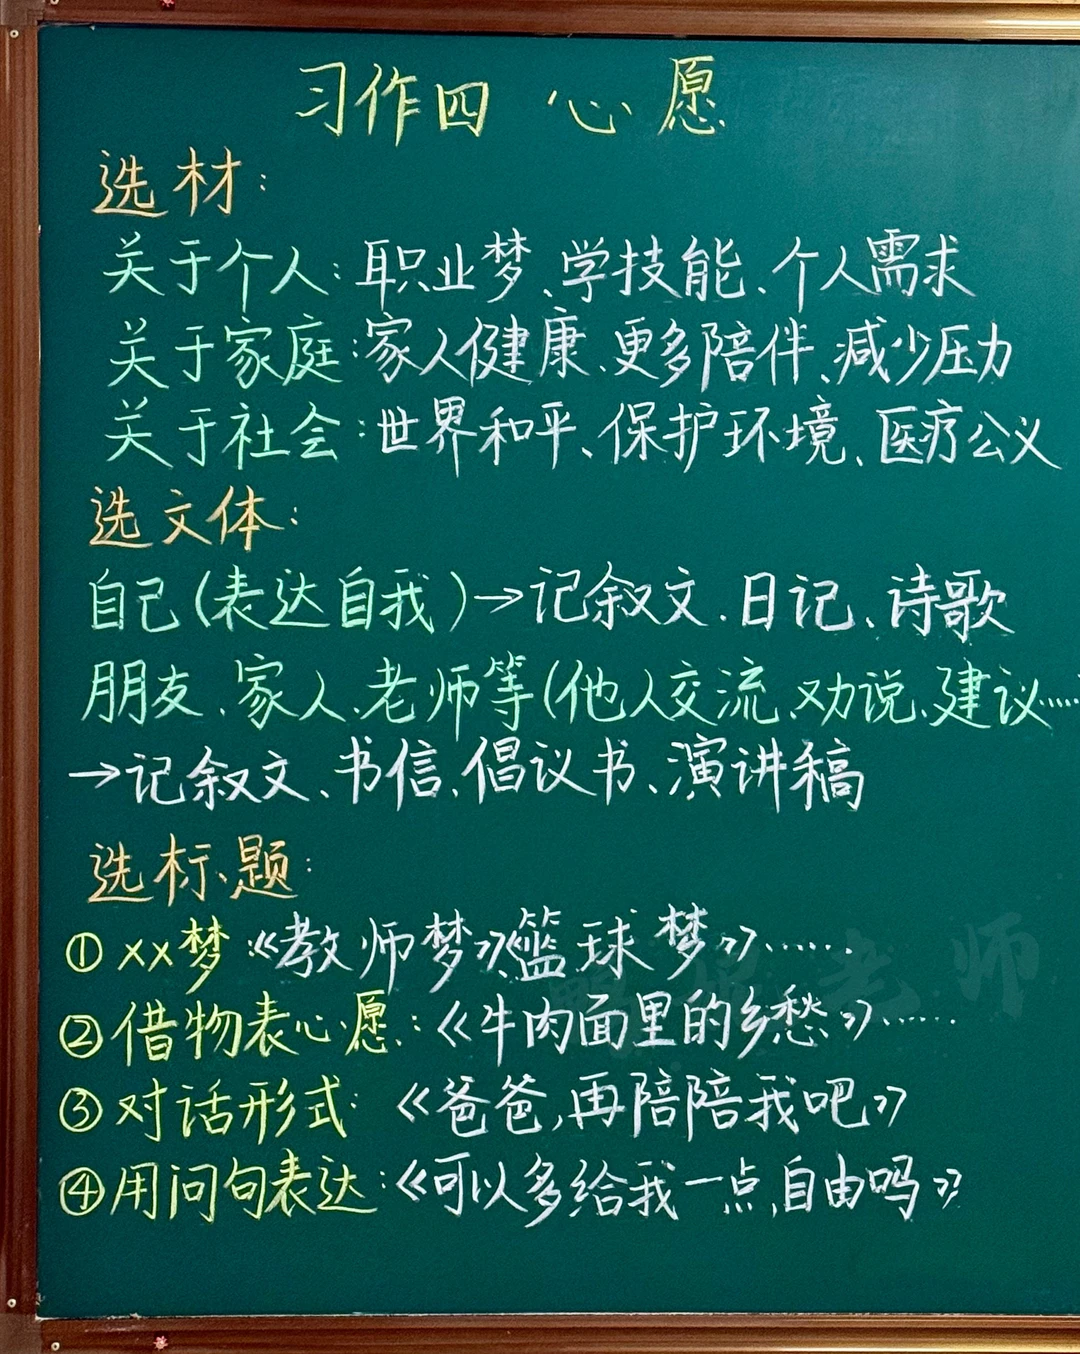 习作四 心愿
选材：
关于个人：职业梦、学技能、个人需求
关于家庭：家人健康、更多陪伴、减少压力
关于社会：世界和平、保护环境、医疗公义
选文体：
自己(表达自我)→记叙文、日记、诗歌
朋友、家人、老师等(他人交流、劝说、建议……
→记叙文、书信、倡议书、演讲稿
选标题：
①××梦：《教师梦》《篮球梦》……
②借物表心愿：《牛肉面里的乡愁》……
③对话形式：《爸爸，再陪陪我吧》
④用问句表达：《可以多给我一点自由吗》
老师